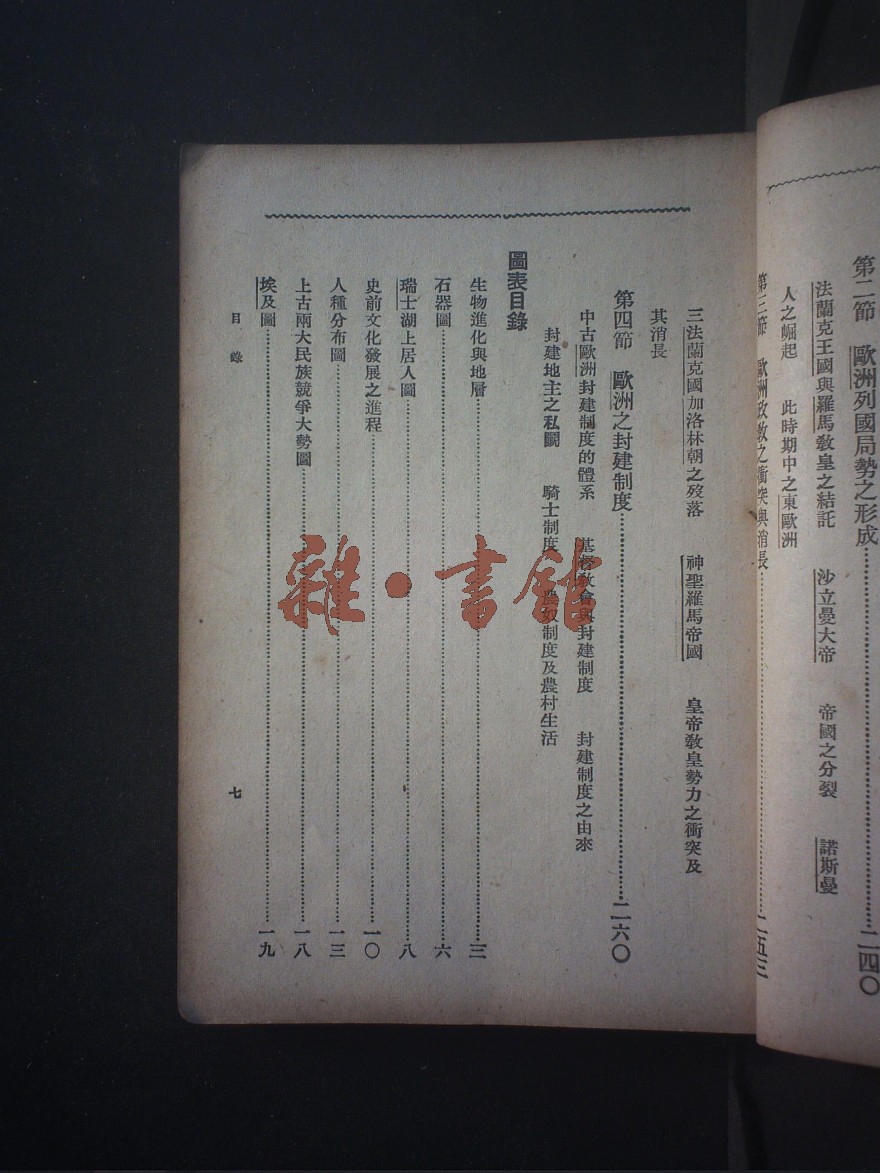 第二節　歐洲列國局勢之形成……二四〇
法蘭克王國與羅馬教皇之結託　沙立曼大帝　帝國之分裂　諾斯曼
人之崛起　此時期中之東歐洲
第三節　歐洲政教之衝突與消長……二五三
三法蘭克國加洛林朝之歿落　神聖羅馬帝國　皇帝教皇勢力之衝突及
其消長
第四節　歐洲之封建制度……二六〇
中古歐洲封建制度的體系　基督教會與封建制度　封建制度之由來
封建地主之私鬬　騎士制度　農奴制度及農村生活
圖表目錄
生物進化與地層……三
石器圖……六
瑞士湖上居人圖……八
史前文化發展之進程……一〇
人種分布圖……一三
上古兩大民族競爭大勢圖……一八
埃及圖……一九
目錄
七
雜·書館